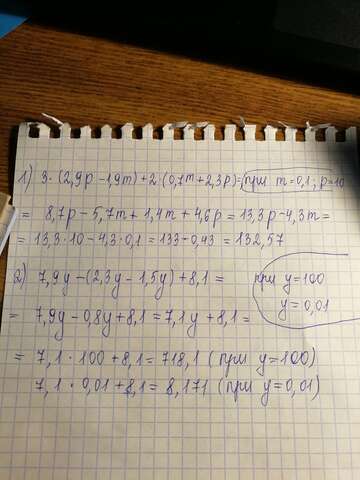 1) 3·(2,9p-1,9m)+2·(0,7m+2,3p)= при m=0,1; p=10
= 8,7p-5,7m+1,4m+4,6p=13,3p-4,3m=
= 13,3·10-4,3·0,1=133-0,43=132,57
2) 7,9y-(2,3y-1,5y)+8,1= при y=100
y=0,01
= 7,9y-0,8y+8,1=7,1y+8,1=
= 7,1·100+8,1=718,1 (при y=100)
7,1·0,01+8,1=8,171 (при y=0,01)